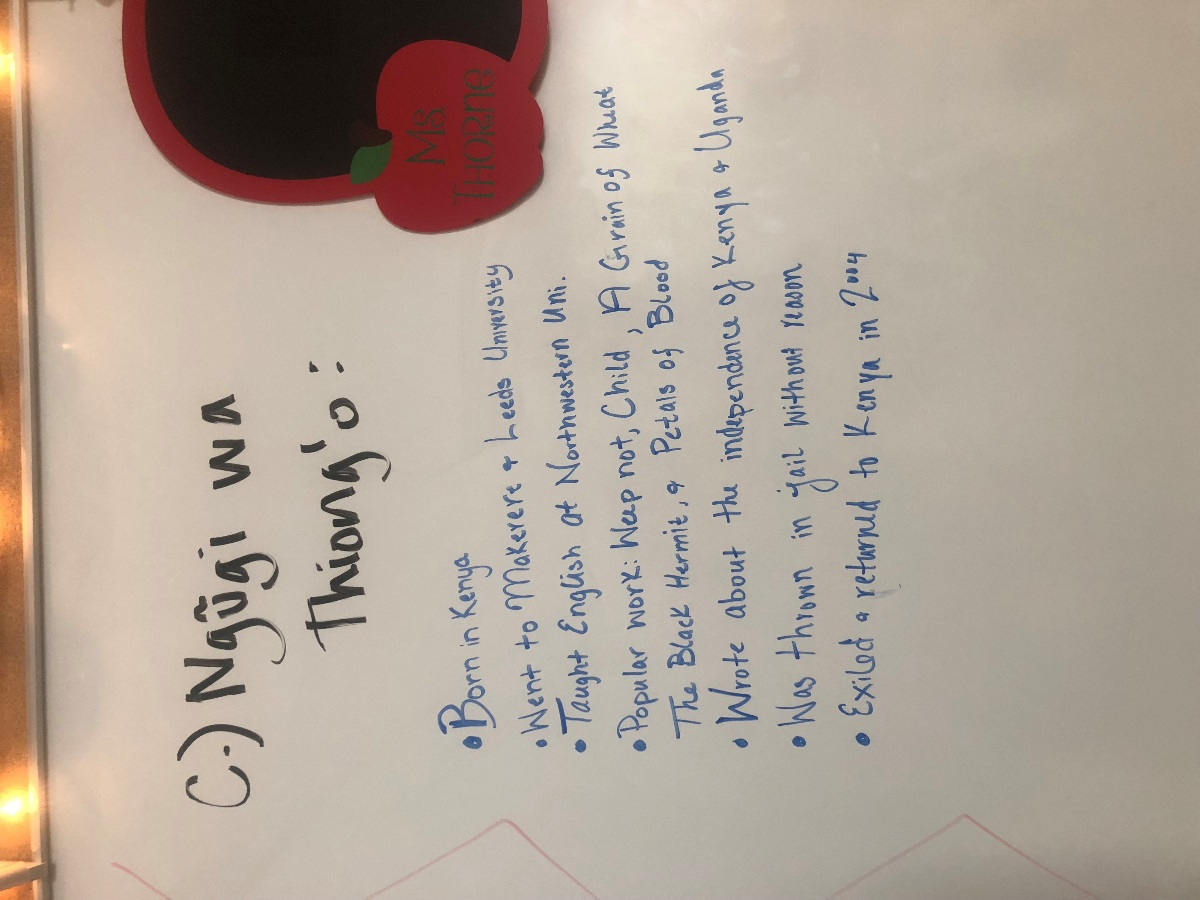 Ms.
THORNE
C.) Ngũgi wa
Thiong'o:
• Born in Kenya
• Went to Makerere & Leeds University
• Taught English at Northwestern Uni.
• Popular work: Weep not, Child, A Grain of Wheat
The Black Hermit, & Petals of Blood
• Wrote about the independence of Kenya & Uganda
• Was thrown in jail without reason
• Exiled & returned to Kenya in 2004